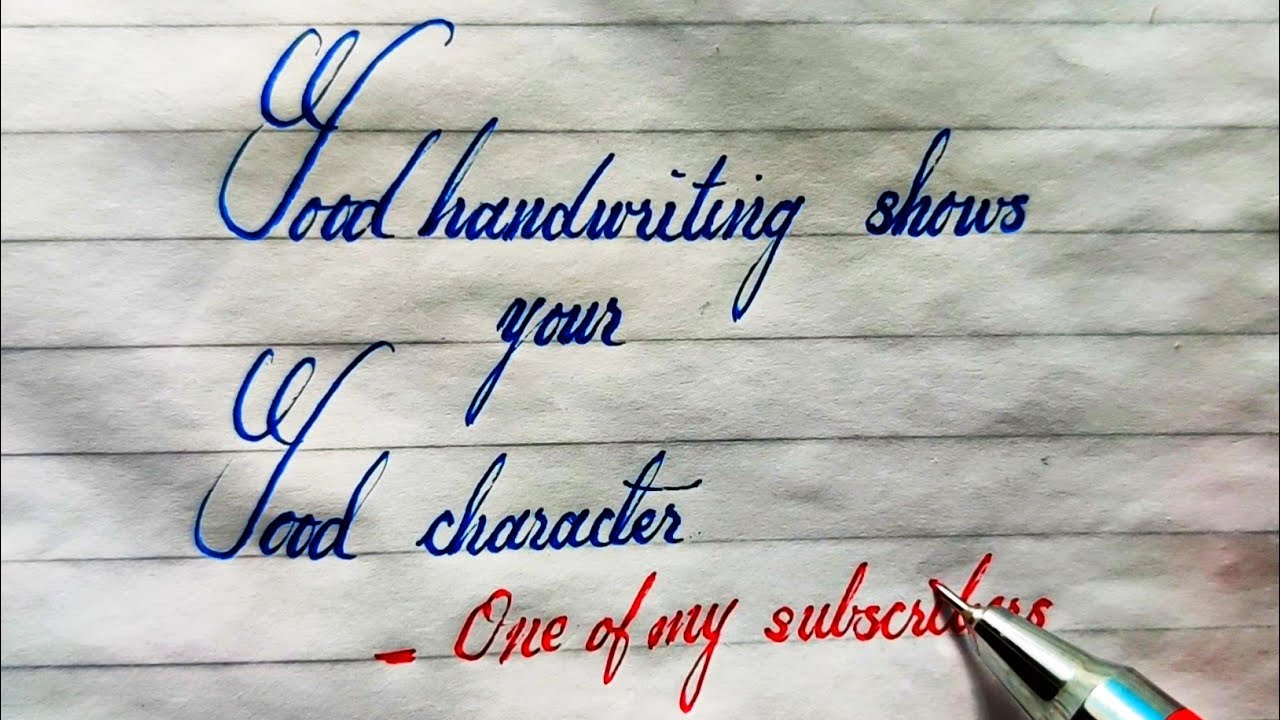 Good handwriting shows
your
Good character
- One of my subscribers